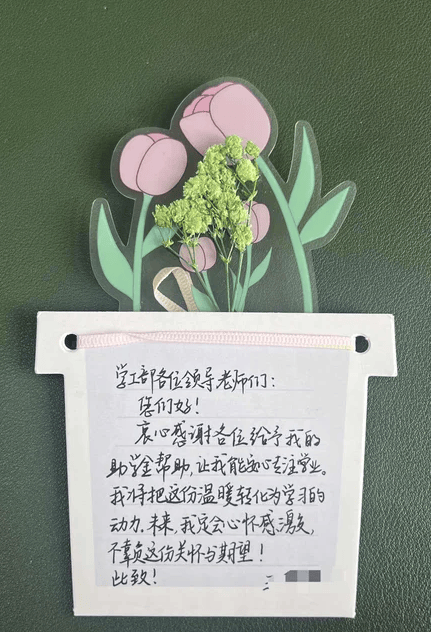 学工部各位领导老师们：
您们好！
衷心感谢各位给予我的
助学金帮助，让我能安心专注学业。
我将把这份温暖转化为学习的
动力，未来，我定会心怀感激，
不辜负这份关怀与期望！
此致！